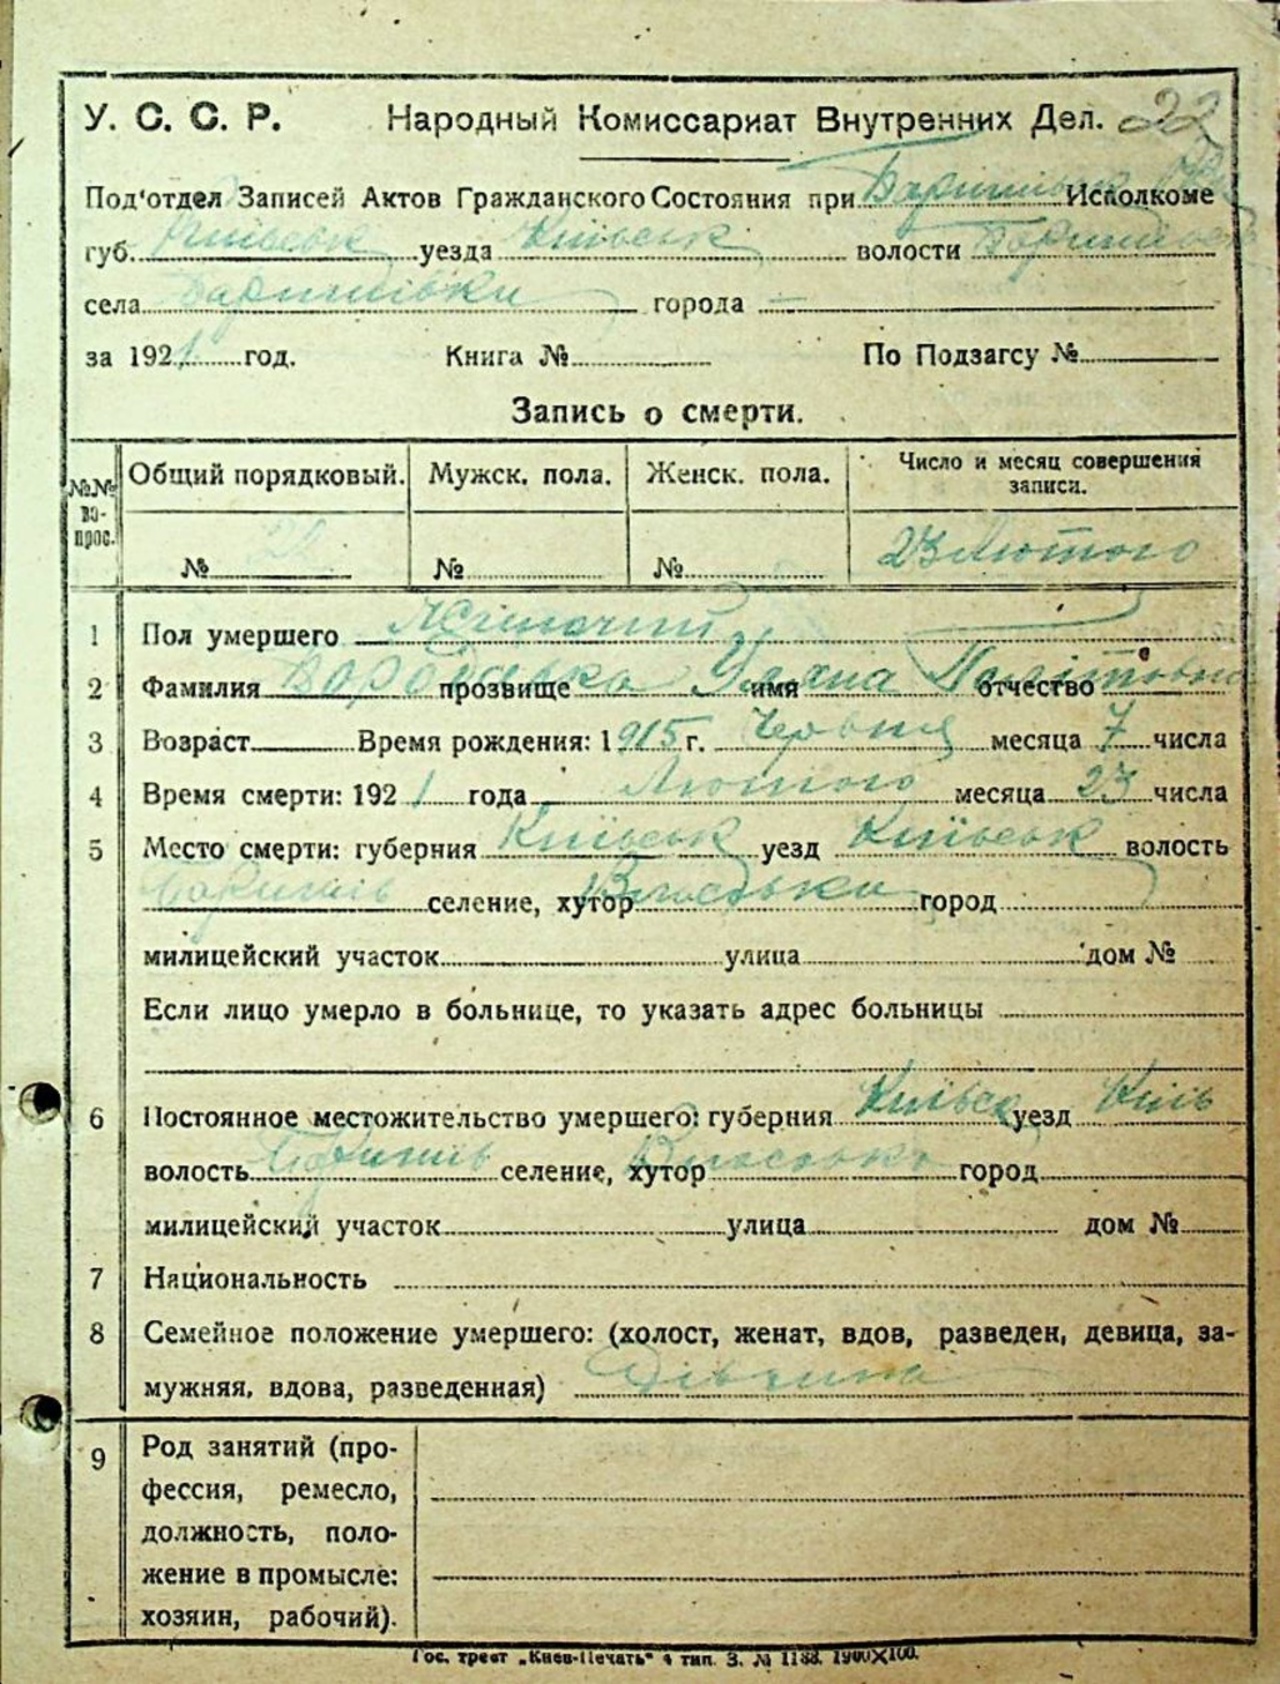 У. С. С. Р. Народный Комиссариат Внутренних Дел. 22
Под'отдел Записей Актов Гражданского Состояния при Исполкоме
губ. Київськ уезда Київськ волости Баришівськ
села Баришівки города —
за 1921 год. Книга № По Подзагсу №
Запись о смерти.
№№ во-прос. Общий порядковый. Мужск. пола. Женск. пола. Число и месяц совершения записи.
№ 22 № № 23 Лютого
1 Пол умершего Жіночий
2 Фамилия прозвище Уляна имя отчество
3 Возраст Время рождения: 1915 г. Червня месяца 7 числа
4 Время смерти: 1921 года Лютого месяца 23 числа
5 Место смерти: губерния Київськ уезд Київськ волость
Баришів селение, хутор Власовка город
милицейский участок улица дом №
Если лицо умерло в больнице, то указать адрес больницы
6 Постоянное местожительство умершего: губерния Київськ уезд Київ
волость Баришів селение, хутор Власовка город
милицейский участок улица дом №
7 Национальность
8 Семейное положение умершего: (холост, женат, вдов, разведен, девица, за-
мужняя, вдова, разведенная) Дівчина
9 Род занятий (про-
фессия, ремесло,
должность, поло-
жение в промысле:
хозяин, рабочий).
Гос. трест „Киев-Печать“ 4 тип. З. № 1188. 1900Х100.